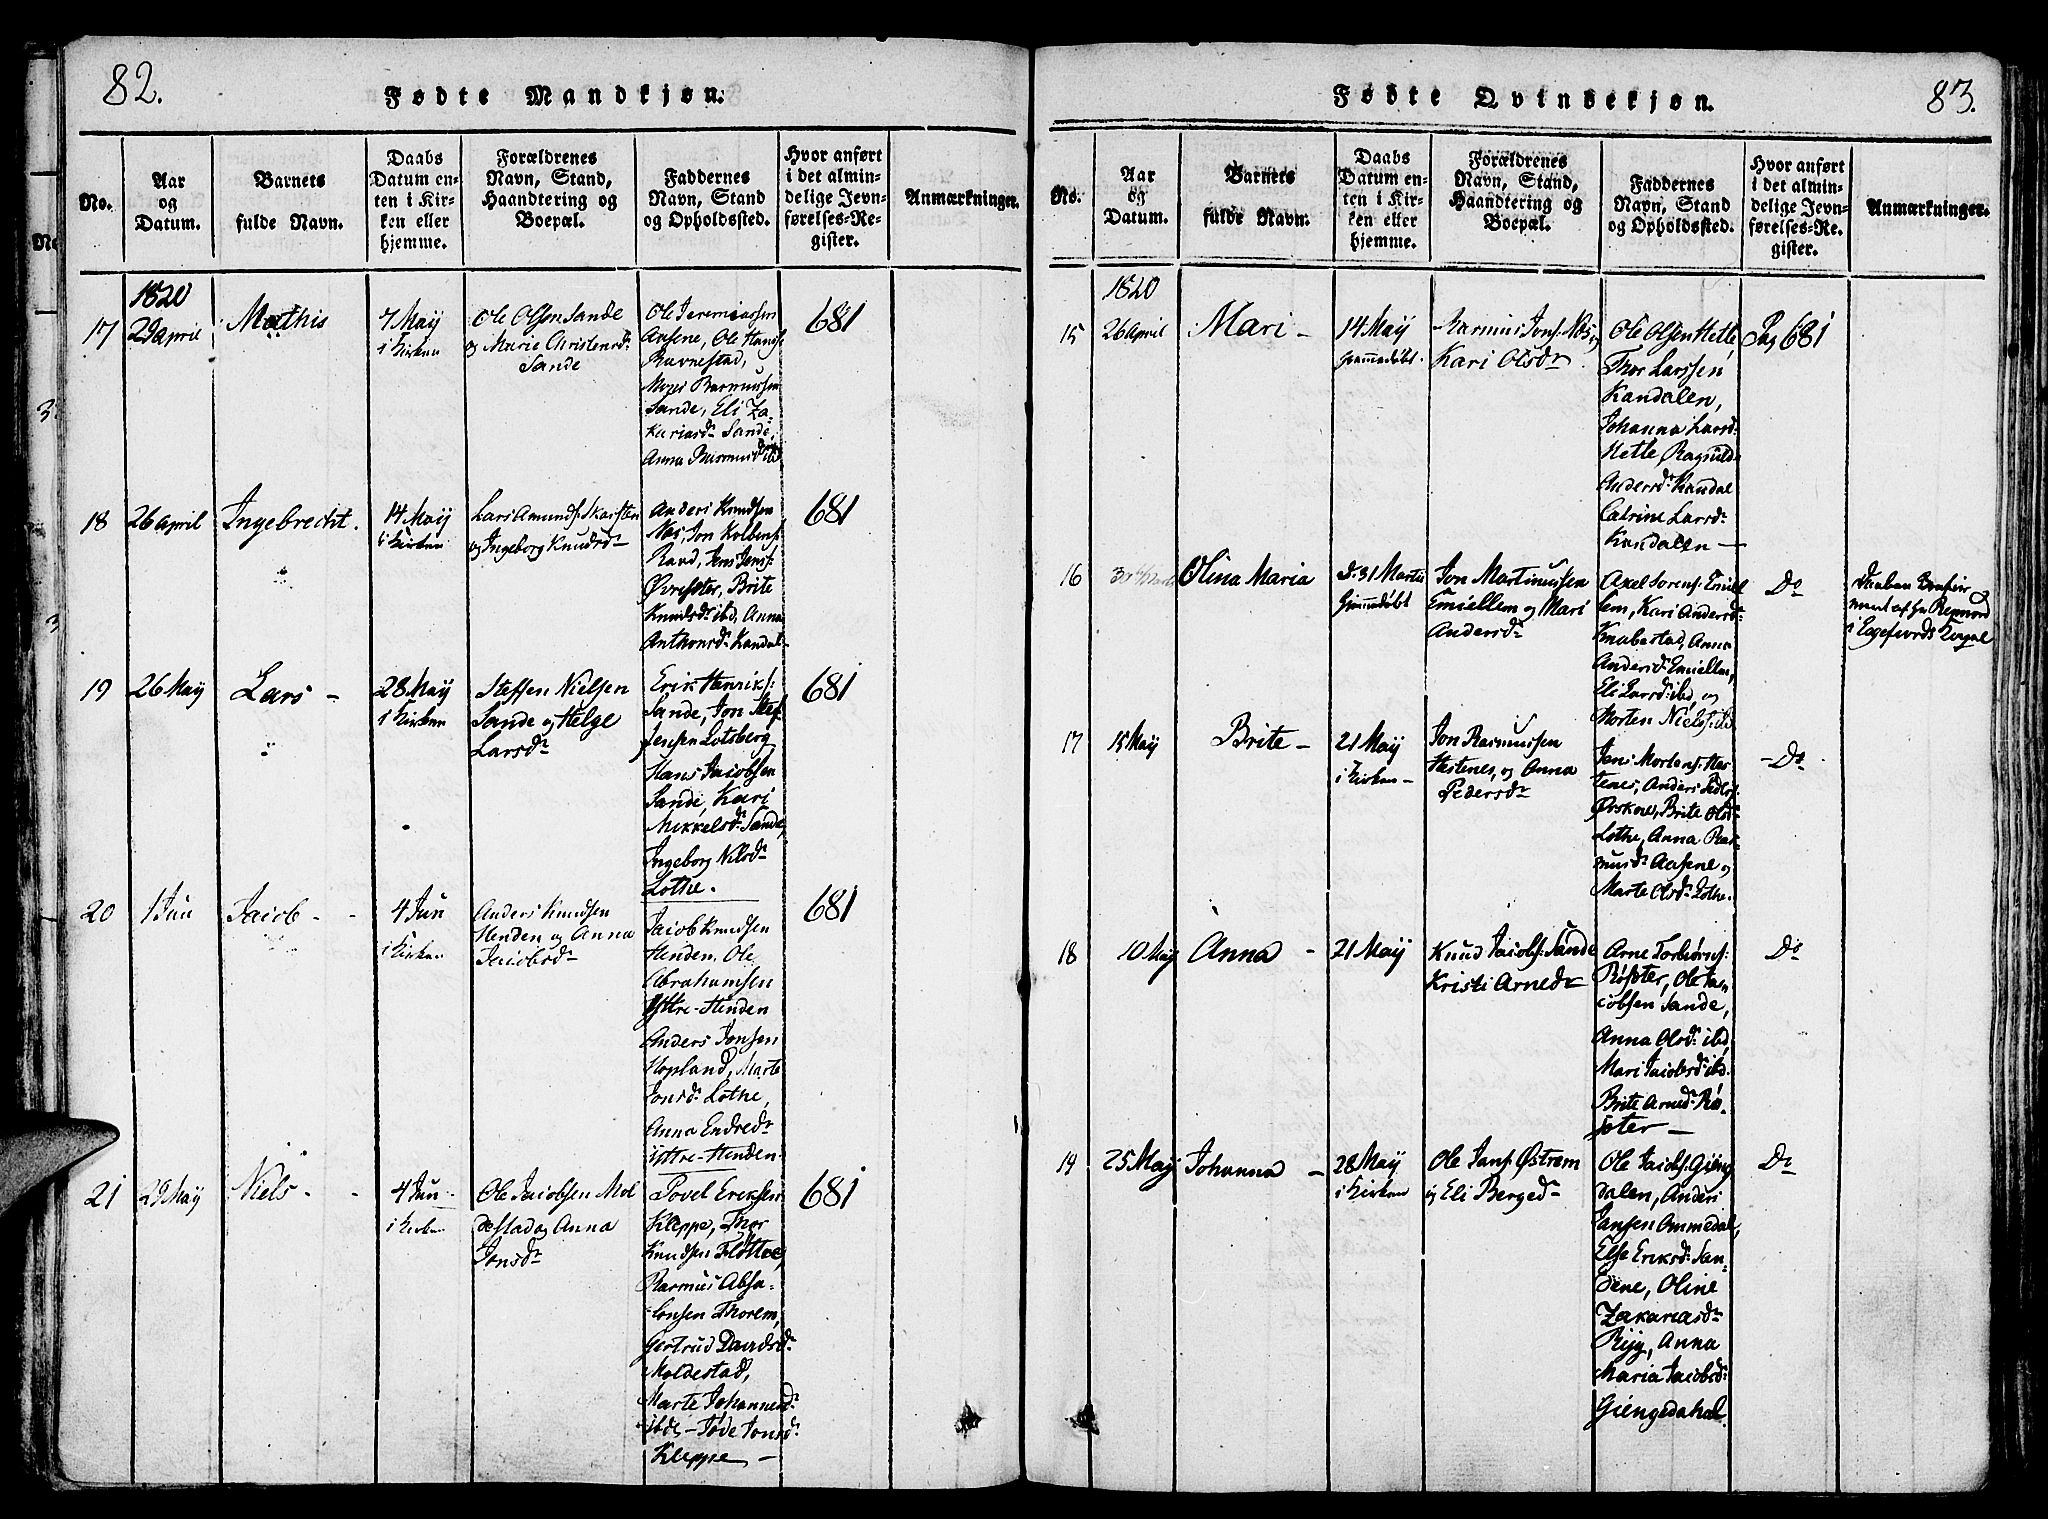 82.
Fødte Mandkjøn.
No.
Aar
og
Datum.
Barnets
fulde Navn.
Daabs
Datum en-
ten i Kir-
ken eller
hjemme.
Forældrenes
Navn, Stand,
Haandtering og
Boepæl.
Faddernes
Navn, Stand
og Opholdssted.
Hvor anført
i det almin-
delige Jevn-
førelses-Re-
gister.
Anmærkninger.
1820
17
29 april
Mathis
7 May
i Kirken
Ole Olsen Sande
og Marie Christensdr
Sande
Ole Jeremiassen
Aasene, Ole Hans:
Ravnestad,
Moses Rasmussen
Sande, Eli Za-
kariasdr Sande,
Anna Rasmusdr ibd
681
18
26 april
Ingebrecht.
14 May
i Kirken
Lars Amunds: Skarsten
og Ingeborg Knudsdr
Anders Knudsen
Nos, Jon Kolbens:
Rand, Jens Jons:
Øvresæter, Brite
Knudsdr ibd, Anna
Anthonsdr Kandal-
681
19
26 May
Lars -
28 May
i Kirken
Steffen Nielsen
Sande og Helge
Larsdr
Erik Henriks:
Sande, Jon
Jensen Lotsberg
Hans Jacobsen
Sande, Kari
Mikkelsdr Sande,
Ingeborg Nilsdr
Lothe.
681
20
1 Jun
Jacob - -
4 Jun
i Kirken
Anders Knudsen
Henden og Anna
Jacobsdr
Jacob Knudsen
Henden, Ole
Abrahamsen
Yttre-Henden
Anders Jonsen
Hopland, Marte
Jonsdr Lothe,
Anna Endredr
yttre-Henden
681
21
29 May
Niels - -
4 Jun
i Kirken
Ole Jacobsen Mol
destad og Anna
Jonsdr
Povel Eriksen
Kleppe, Thor
Knudsen Fløtte,
Rasmus Absa-
lonsen Thorem,
Gertrud Davidsdr
Moldestad,
Marte Johannesdr
ibd - Jøde Jonsdr
Kleppe -
681
83.
Fødte Qvindekjøn.
No.
Aar
og
Datum.
Barnets
fulde Navn.
Daabs
Datum en-
ten i Kir-
ken eller
hjemme.
Forældrenes
Navn, Stand,
Haandtering og
Boepæl.
Faddernes
Navn, Stand
og Opholdssted.
Hvor anført
i det almin-
delige Jevn-
førelses-Re-
gister.
Anmærkninger.
1820
15
26 april
Mari -
14 May
hjemmedøbt
Rasmus Jons: Nos og
Kari Olsdr
Ole Olsen Hette
Thor Larssen
Kandalen,
Johanna Larsdr
Hette, Ragnild
Andersdr Kandal
Catrine Larsdr
Kandalen -
Pag 681
16
Olina Maria
D. 31 Martii
hjemmedøbt
Jon Martinussen
Emiellem og Mari
Andersdr
Axel Sorens: Emiel
lem, Kari Andersdr
Knabestad, Anna
Andersdr Emiellem,
Eli Larsdr ibd, og
Morten Niels: ibd
Do
i Eegefiords
17
15 May
Brite -
21 May
i Kirken -
Jon Rasmussen
Hestenes, og Anna
Pedersdr
Jens Mortens: Hes-
tenes, Anders Peders:
Ørskne, Brite Olsdr
Lothe, Anna Ras-
musdr Aasene og
Marte Olsdr Lothe.
- Do
18
10 May
Anna -
21 May
Knud Jacobs: Sande
Kristi Arnedr
Arne Torbiørns:
Røsæter, Ole Ja-
cobsen Sande,
Anna Olsdr ibd,
Mari Jacobsdr ibd.
Brite Arnedr Rø-
sæter -
Do
19
25 May
Johanna -
28 May
i Kirken
Ole Jans: Østrem
og Eli Bergedr
Ole Jacobs: Gieng
dalen, Anders
Jansen Ommedal,
Else Eriksdr San-
dene, Oline
Zakariasdr
Ryg, Anna
Maria Jacobsdr
Giengedahal
Do